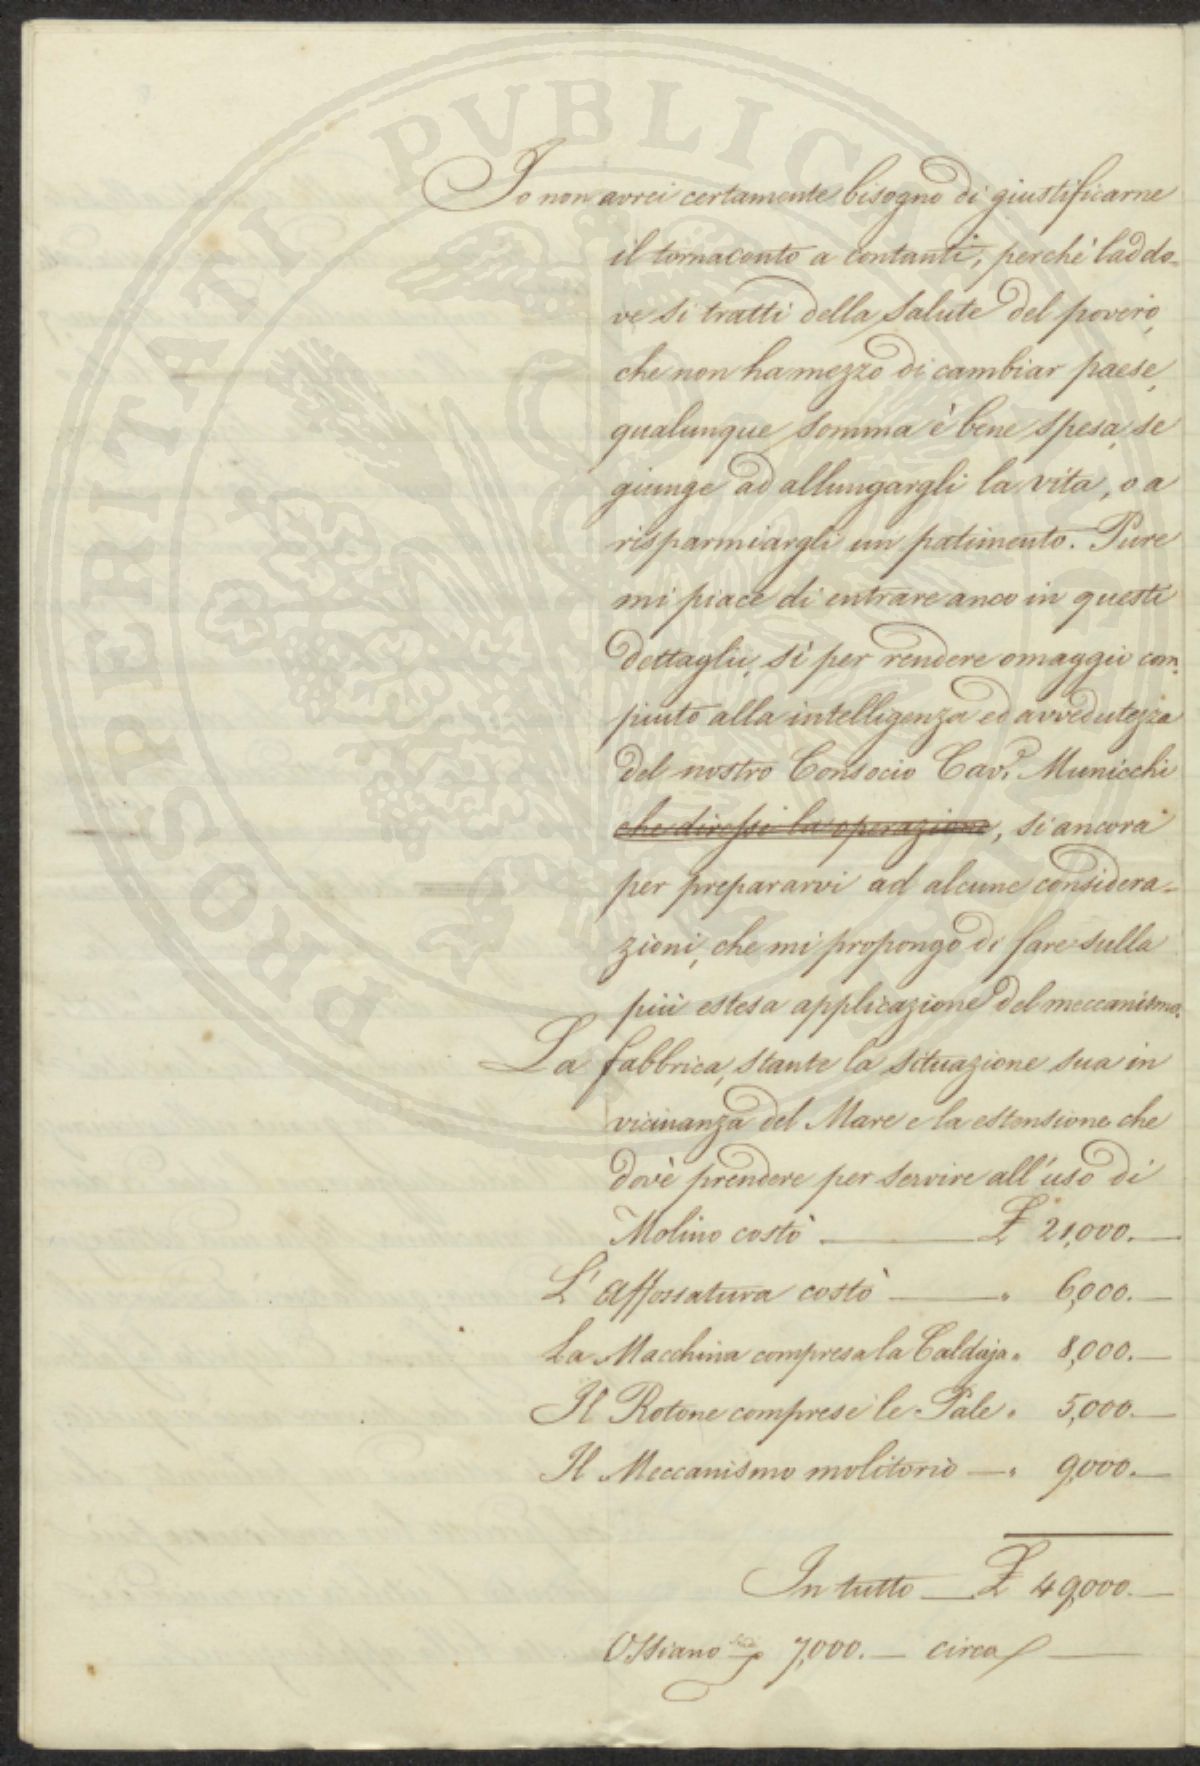 PROSPERITATI PVBLICAE
Io non avrei certamente bisogno di giustificarne
il tornaconto a contanti, perchè laddo-
ve si tratti della salute del povero,
che non ha mezzo di cambiar paese,
qualunque somma è bene spesa, se
giunge ad allungargli la vita, o a
risparmiargli un patimento. Pure
mi piace di entrare anco in questi
dettaglii, sì per rendere omaggio com-
piuto alla intelligenza ed avvedutezza
del nostro Consocio Cav.r Municchi
che diresse la operazione, sì ancora
per prepararvi ad alcune considera-
zioni, che mi propongo di fare sulla
più estesa applicazione del meccanismo.
La fabbrica, stante la situazione sua in
vicinanza del Mare e la estensione che
dovè prendere per servire all'uso di
Molino costò ——— £ 21,000. —
L'Affossatura costò ——— " 6,000. —
La Macchina compresa la Caldaja " 8,000. —
Il Rotone comprese le Pale " 5,000. —
Il Meccanismo molitorio — " 9,000. —
In tutto — £ 49,000. —
Ossiano 7,000. — circa —